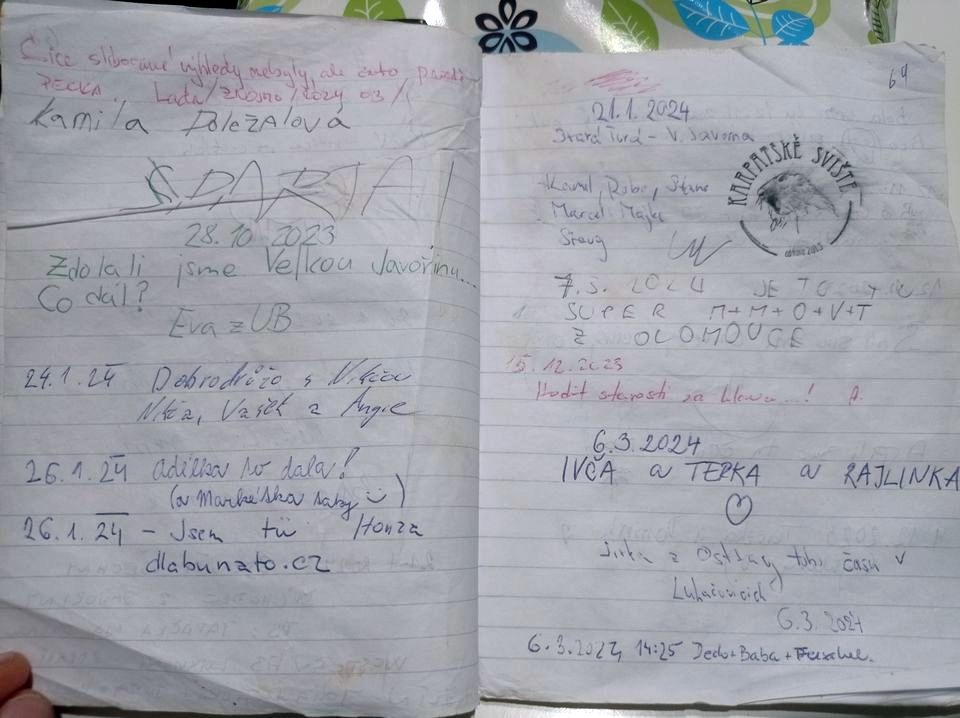 Sice slibované výhledy nebyly, ale zato
PECKA. Lada/ZNOJMO/
Kamila Doležalová
28.10 2023
Zdolali jsme Velkou Javořinu...
Co dál?
Eva z UB
24.1.24 Dobrodrůžo s Nikčou
Nikča, Vašek a Angie
26.1.24 Adélka to dala!
(a Markétka taky)
26.1.24 – Jsem tu Honza
dlabunato.cz
64
21.1.2024
Stará Turá – V. Javorina
KARPATSKÉ SVIŠTE
Kamil, Robo,
Marcel Majka
7.3. 2024 JE TO TU
SUPER M+M+O+V+T
Z OLOMOUCE
15.12.2023
Hodit starosti za hlavu...! A.
6.3.2024
IVČA a TERKA a RAJLINKA
Jirka z Ostravy toho času v
Luhačovicích
6.3. 2024
6.3.2024, 14:25 Dedo+Baba+